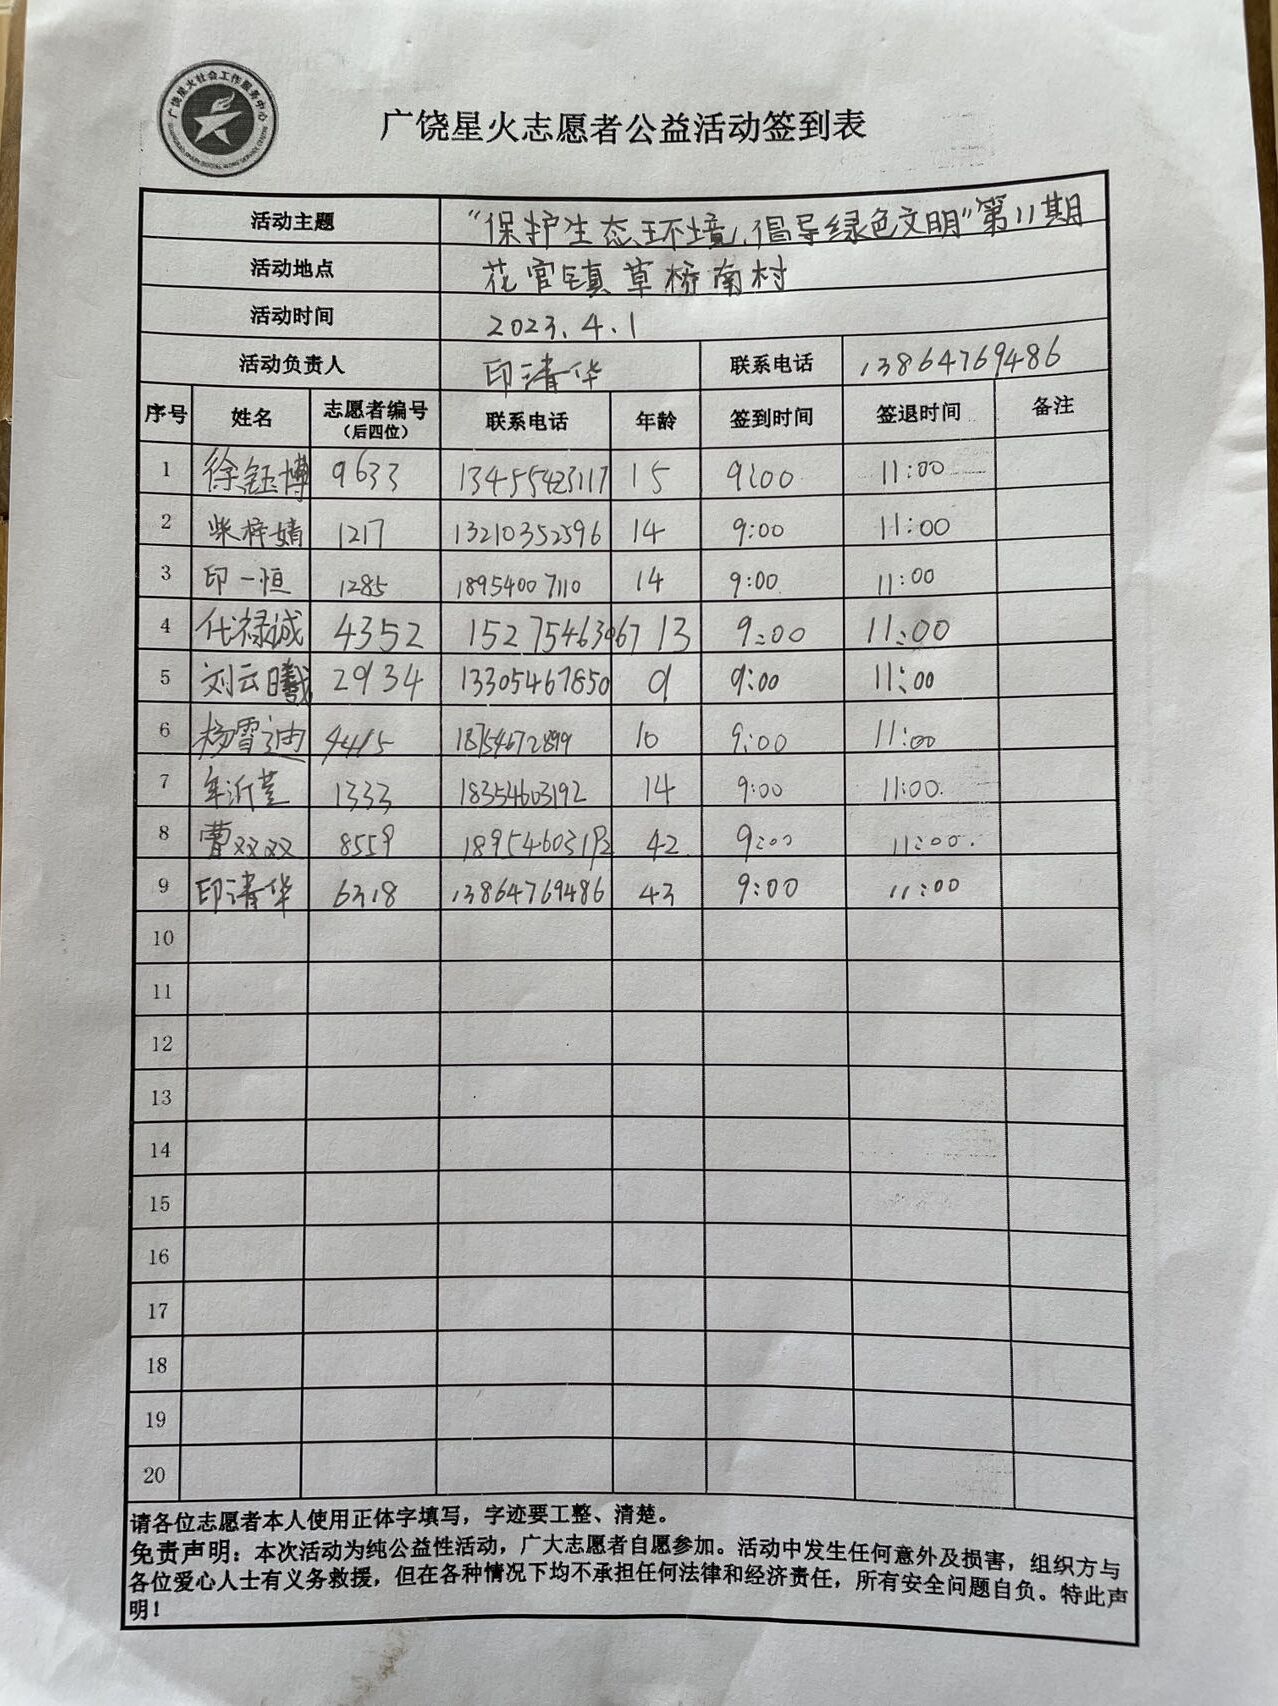 广饶星火社会工作服务中心
广饶星火志愿者公益活动签到表
活动主题 "保护生态环境,倡导绿色文明"第11期
活动地点 花官镇草桥南村
活动时间 2023.4.1
活动负责人 印清华 联系电话 13864769486
序号 姓名 志愿者编号(后四位) 联系电话 年龄 签到时间 签退时间 备注
1 徐钰博 9633 13455423117 15 9:00 11:00
2 柴梓婧 1217 13210352596 14 9:00 11:00
3 印一恒 1285 18954007110 14 9:00 11:00
4 代禄诚 4352 15275463067 13 9:00 11:00
5 刘云曦 2934 13305467850 9 9:00 11:00
6 杨雪迪 4415 18754672899 10 9:00 11:00
7 1333 18354603192 14 9:00 11:00.
8 曹双双 8559 18954603192 42 9:00 11:00.
9 印清华 6318 13864769486 43 9:00 11:00
10
11
12
13
14
15
16
17
18
19
20
请各位志愿者本人使用正体字填写，字迹要工整、清楚。
免责声明：本次活动为纯公益性活动，广大志愿者自愿参加。活动中发生任何意外及损害，组织方与
各位爱心人士有义务救援，但在各种情况下均不承担任何法律和经济责任，所有安全问题自负。特此声
明！